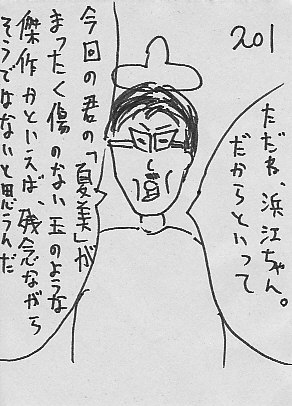 201
ただね、浜江ちゃん。
だからといって
今回の君の「夏美」が
まったく傷のない玉のような
傑作かといえば、残念ながら
そうではないと思うんだ